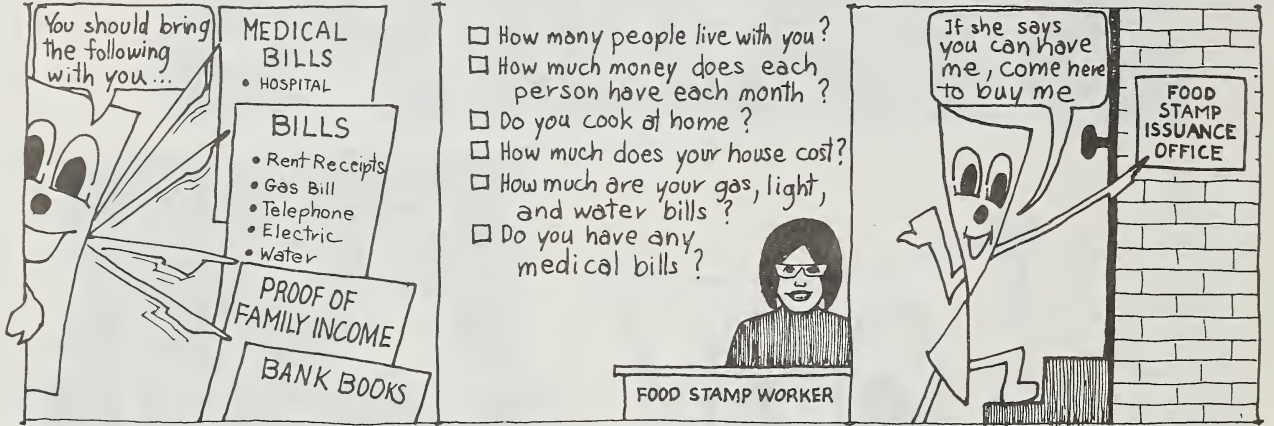 You should bring
the following
with you...
MEDICAL
BILLS
• HOSPITAL
BILLS
• Rent Receipts
• Gas Bill
• Telephone
• Electric
• Water
PROOF OF
FAMILY INCOME
BANK BOOKS
☐ How many people live with you?
☐ How much money does each
person have each month?
☐ Do you cook at home?
☐ How much does your house cost?
☐ How much are your gas, light,
and water bills?
☐ Do you have any
medical bills?
FOOD STAMP WORKER
If she says
you can have
me, come here
to buy me
FOOD
STAMP
ISSUANCE
OFFICE